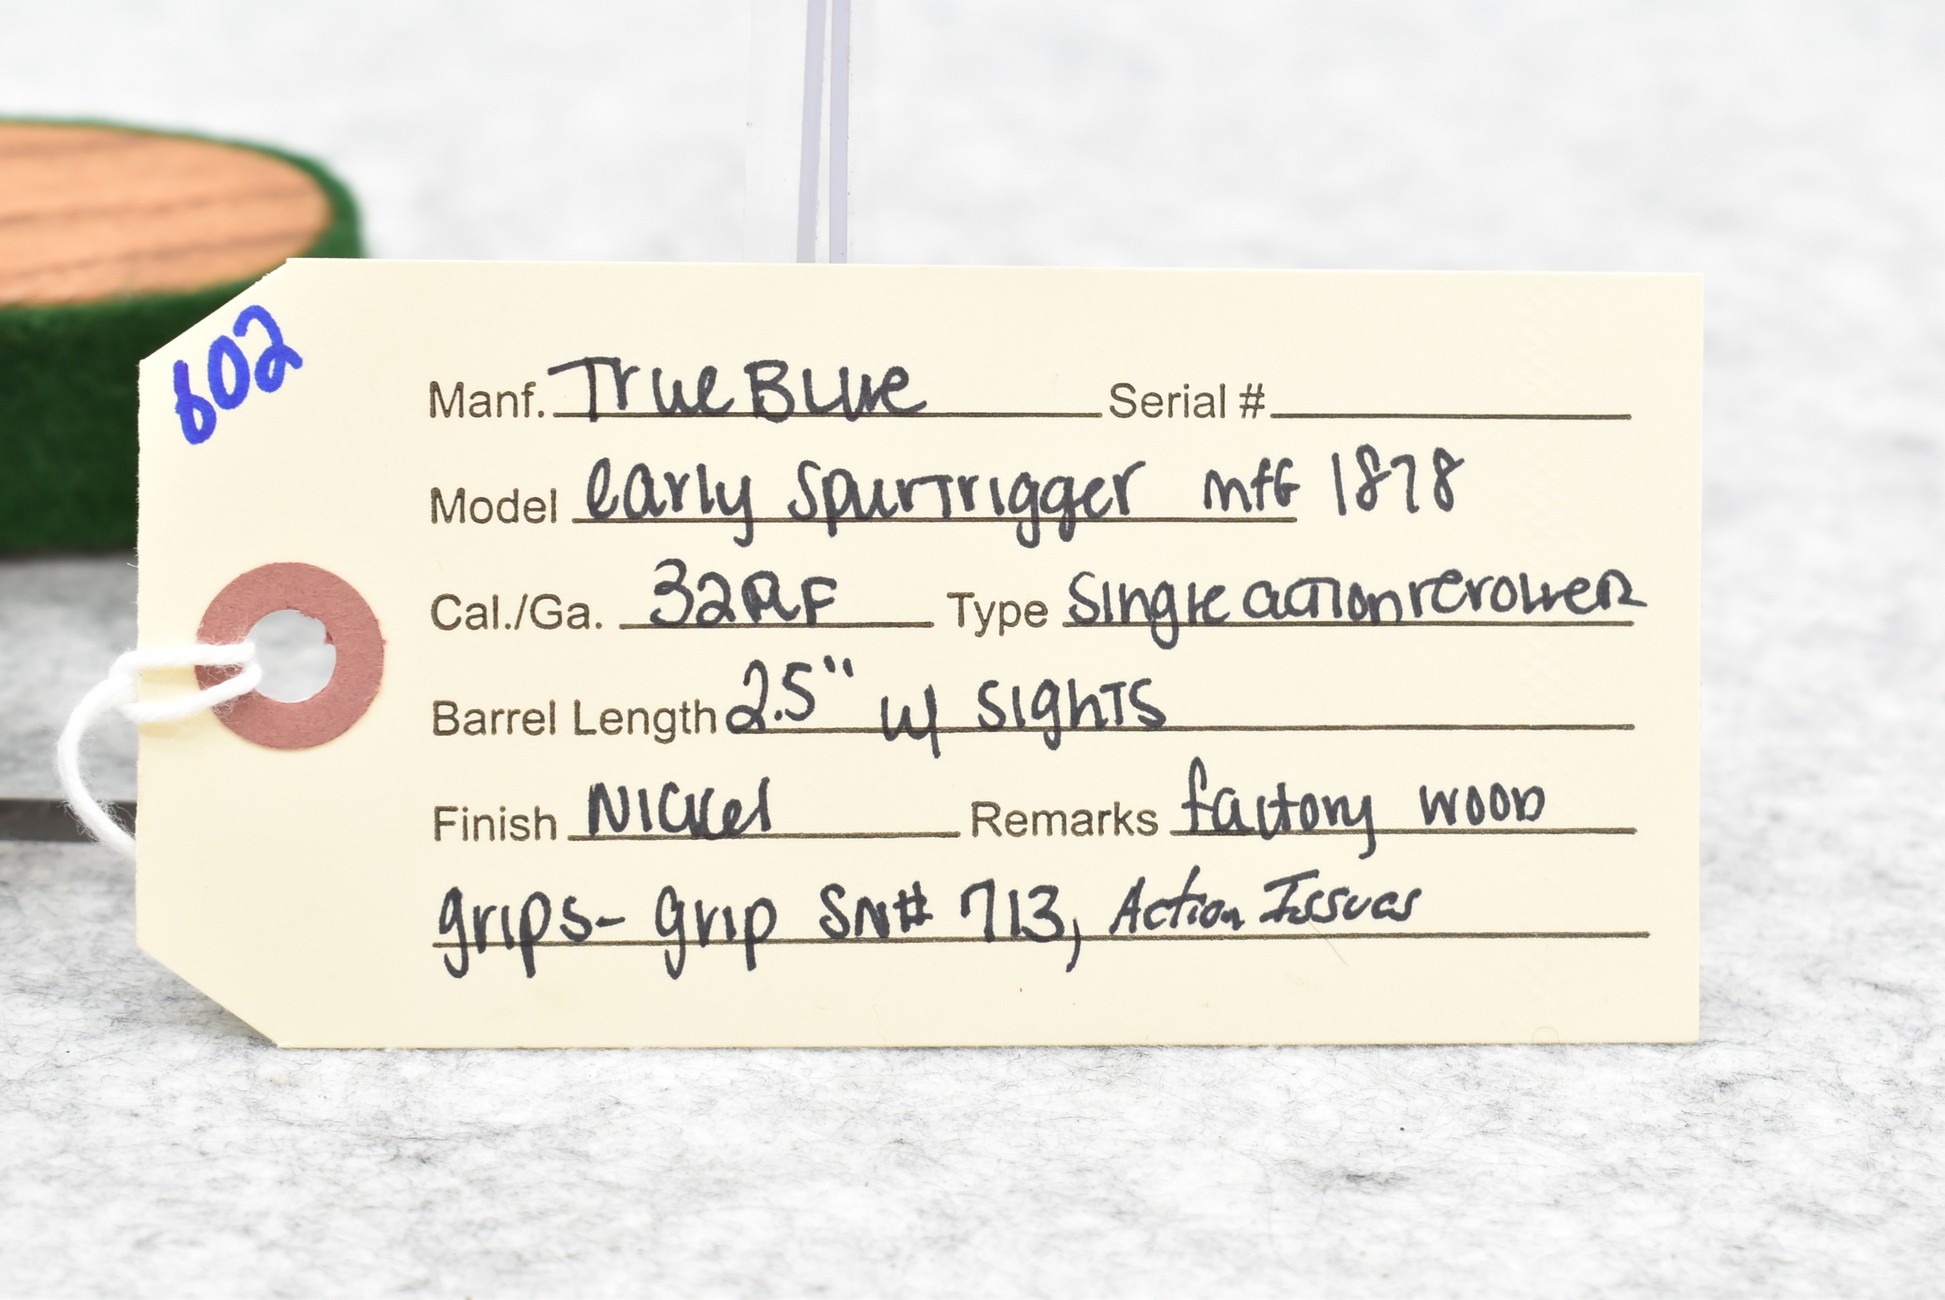 602
Manf. True Blue Serial #
Model early Spurtrigger mfG 1878
Cal./Ga. 32RF Type Single action revolver
Barrel Length 2.5" w/ Sights
Finish Nickel Remarks factory wood
grips- grip SN# 713, Action Issues